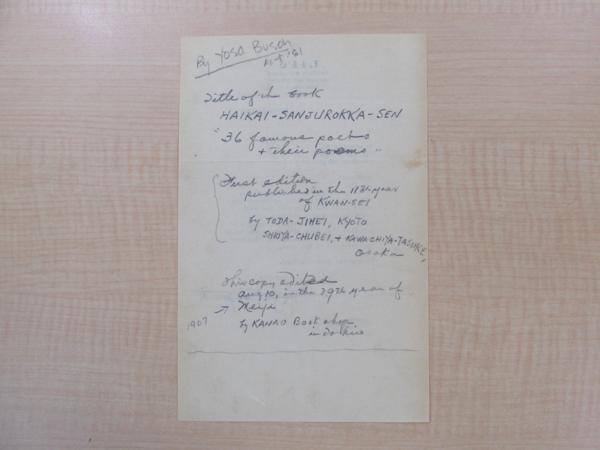 By Yosa Buson
'61
Title of the book
HAIKAI-SANJUROKKA-SEN
"36 famous poets
+ their poems"
First edition
published in the 11th year
of KWAN-SEI
by TODA-JIHEI, KYOTO
SHIOYA-CHUBEI, + KAWACHIYA-TASUKE,
Osaka
This copy edited
Aug 10, in the 39th year of
→ Meiji
1907
by KANAO Book shop
in